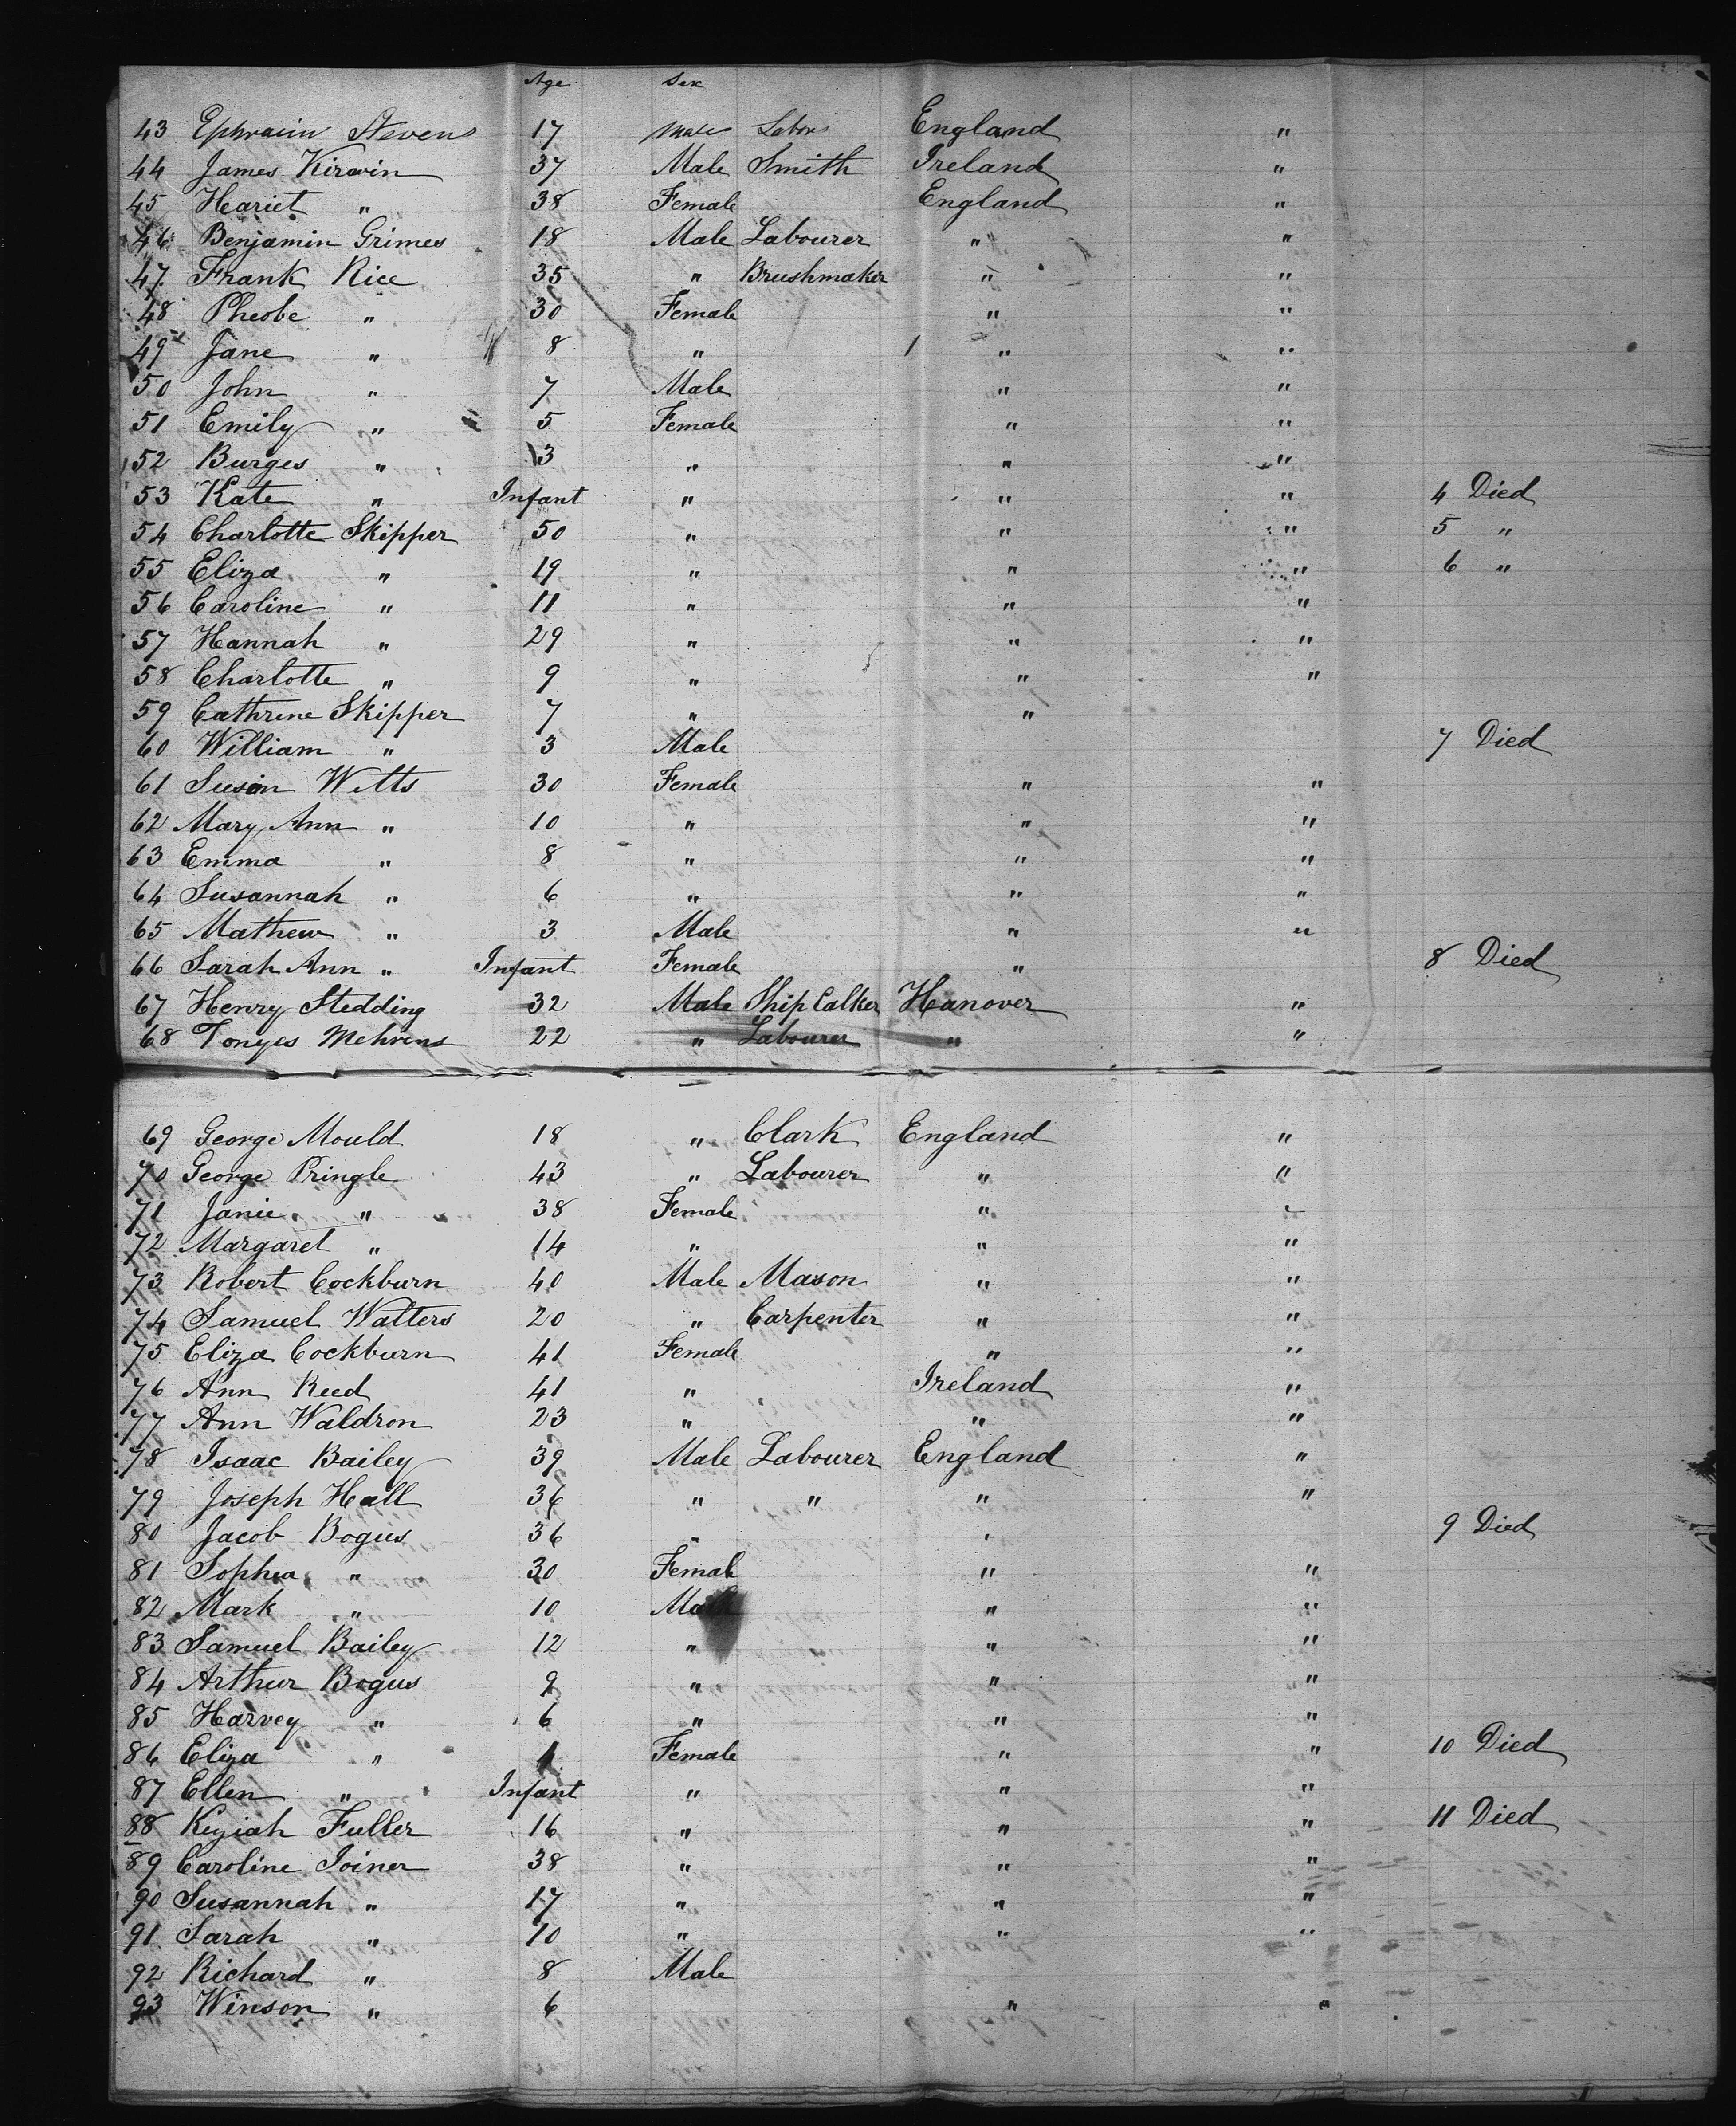 Age Sex
43 Ephraim Stevens 17 Male Labor England "
44 James Kirwin 37 Male Smith Ireland "
45 Hariet " 38 Female England "
46 Benjamin Grimes 18 Male Labourer " "
47 Frank Rice 35 " Brushmaker " "
48 Pheobe " 30 Female " "
49 Jane " 8 " " "
50 John " 7 Male " "
51 Emily " 5 Female " "
52 Burges " 3 " " "
53 Kate " Infant " " " 4 Died
54 Charlotte Skipper 50 " " " 5 "
55 Eliza " 19 " " " 6 "
56 Caroline " 11 " " "
57 Hannah " 29 " " "
58 Charlotte " 9 " " "
59 Cathrine Skipper 7 " "
60 William " 3 Male 7 Died
61 Susan Witts 30 Female " "
62 Mary Ann " 10 " " "
63 Emma " 8 " " "
64 Susannah " 6 " " "
65 Mathew " 3 Male " "
66 Sarah Ann " Infant Female " 8 Died
67 Henry Stedding 32 Male Ship Calker Hanover "
68 Tonges Mehrens 22 " Labourer " "
69 George Mould 18 " Clark England "
70 George Pringle 43 " Labourer " "
71 Janie " 38 Female " "
72 Margaret " 14 " " "
73 Robert Cockburn 40 Male Mason " "
74 Samuel Watters 20 " Carpenter " "
75 Eliza Cockburn 41 Female " "
76 Ann Reed 41 " Ireland "
77 Ann Waldron 23 " " "
78 Isaac Bailey 39 Male Labourer England "
79 Joseph Hall 36 " " " "
80 Jacob Bogus 36 " " 9 Died
81 Sophia " 30 Female " "
82 Mark " 10 Male " "
83 Samuel Bailey 12 " " "
84 Arthur Bogus 9 " " "
85 Harvey " 6 " " "
86 Eliza " 4 Female " " 10 Died
87 Ellen " Infant " " "
88 Keziah Fuller 16 " " " 11 Died
89 Caroline Joiner 38 " " "
90 Susannah " 17 " " "
91 Sarah " 10 " " "
92 Richard " 8 Male
93 Winson " 6 " "